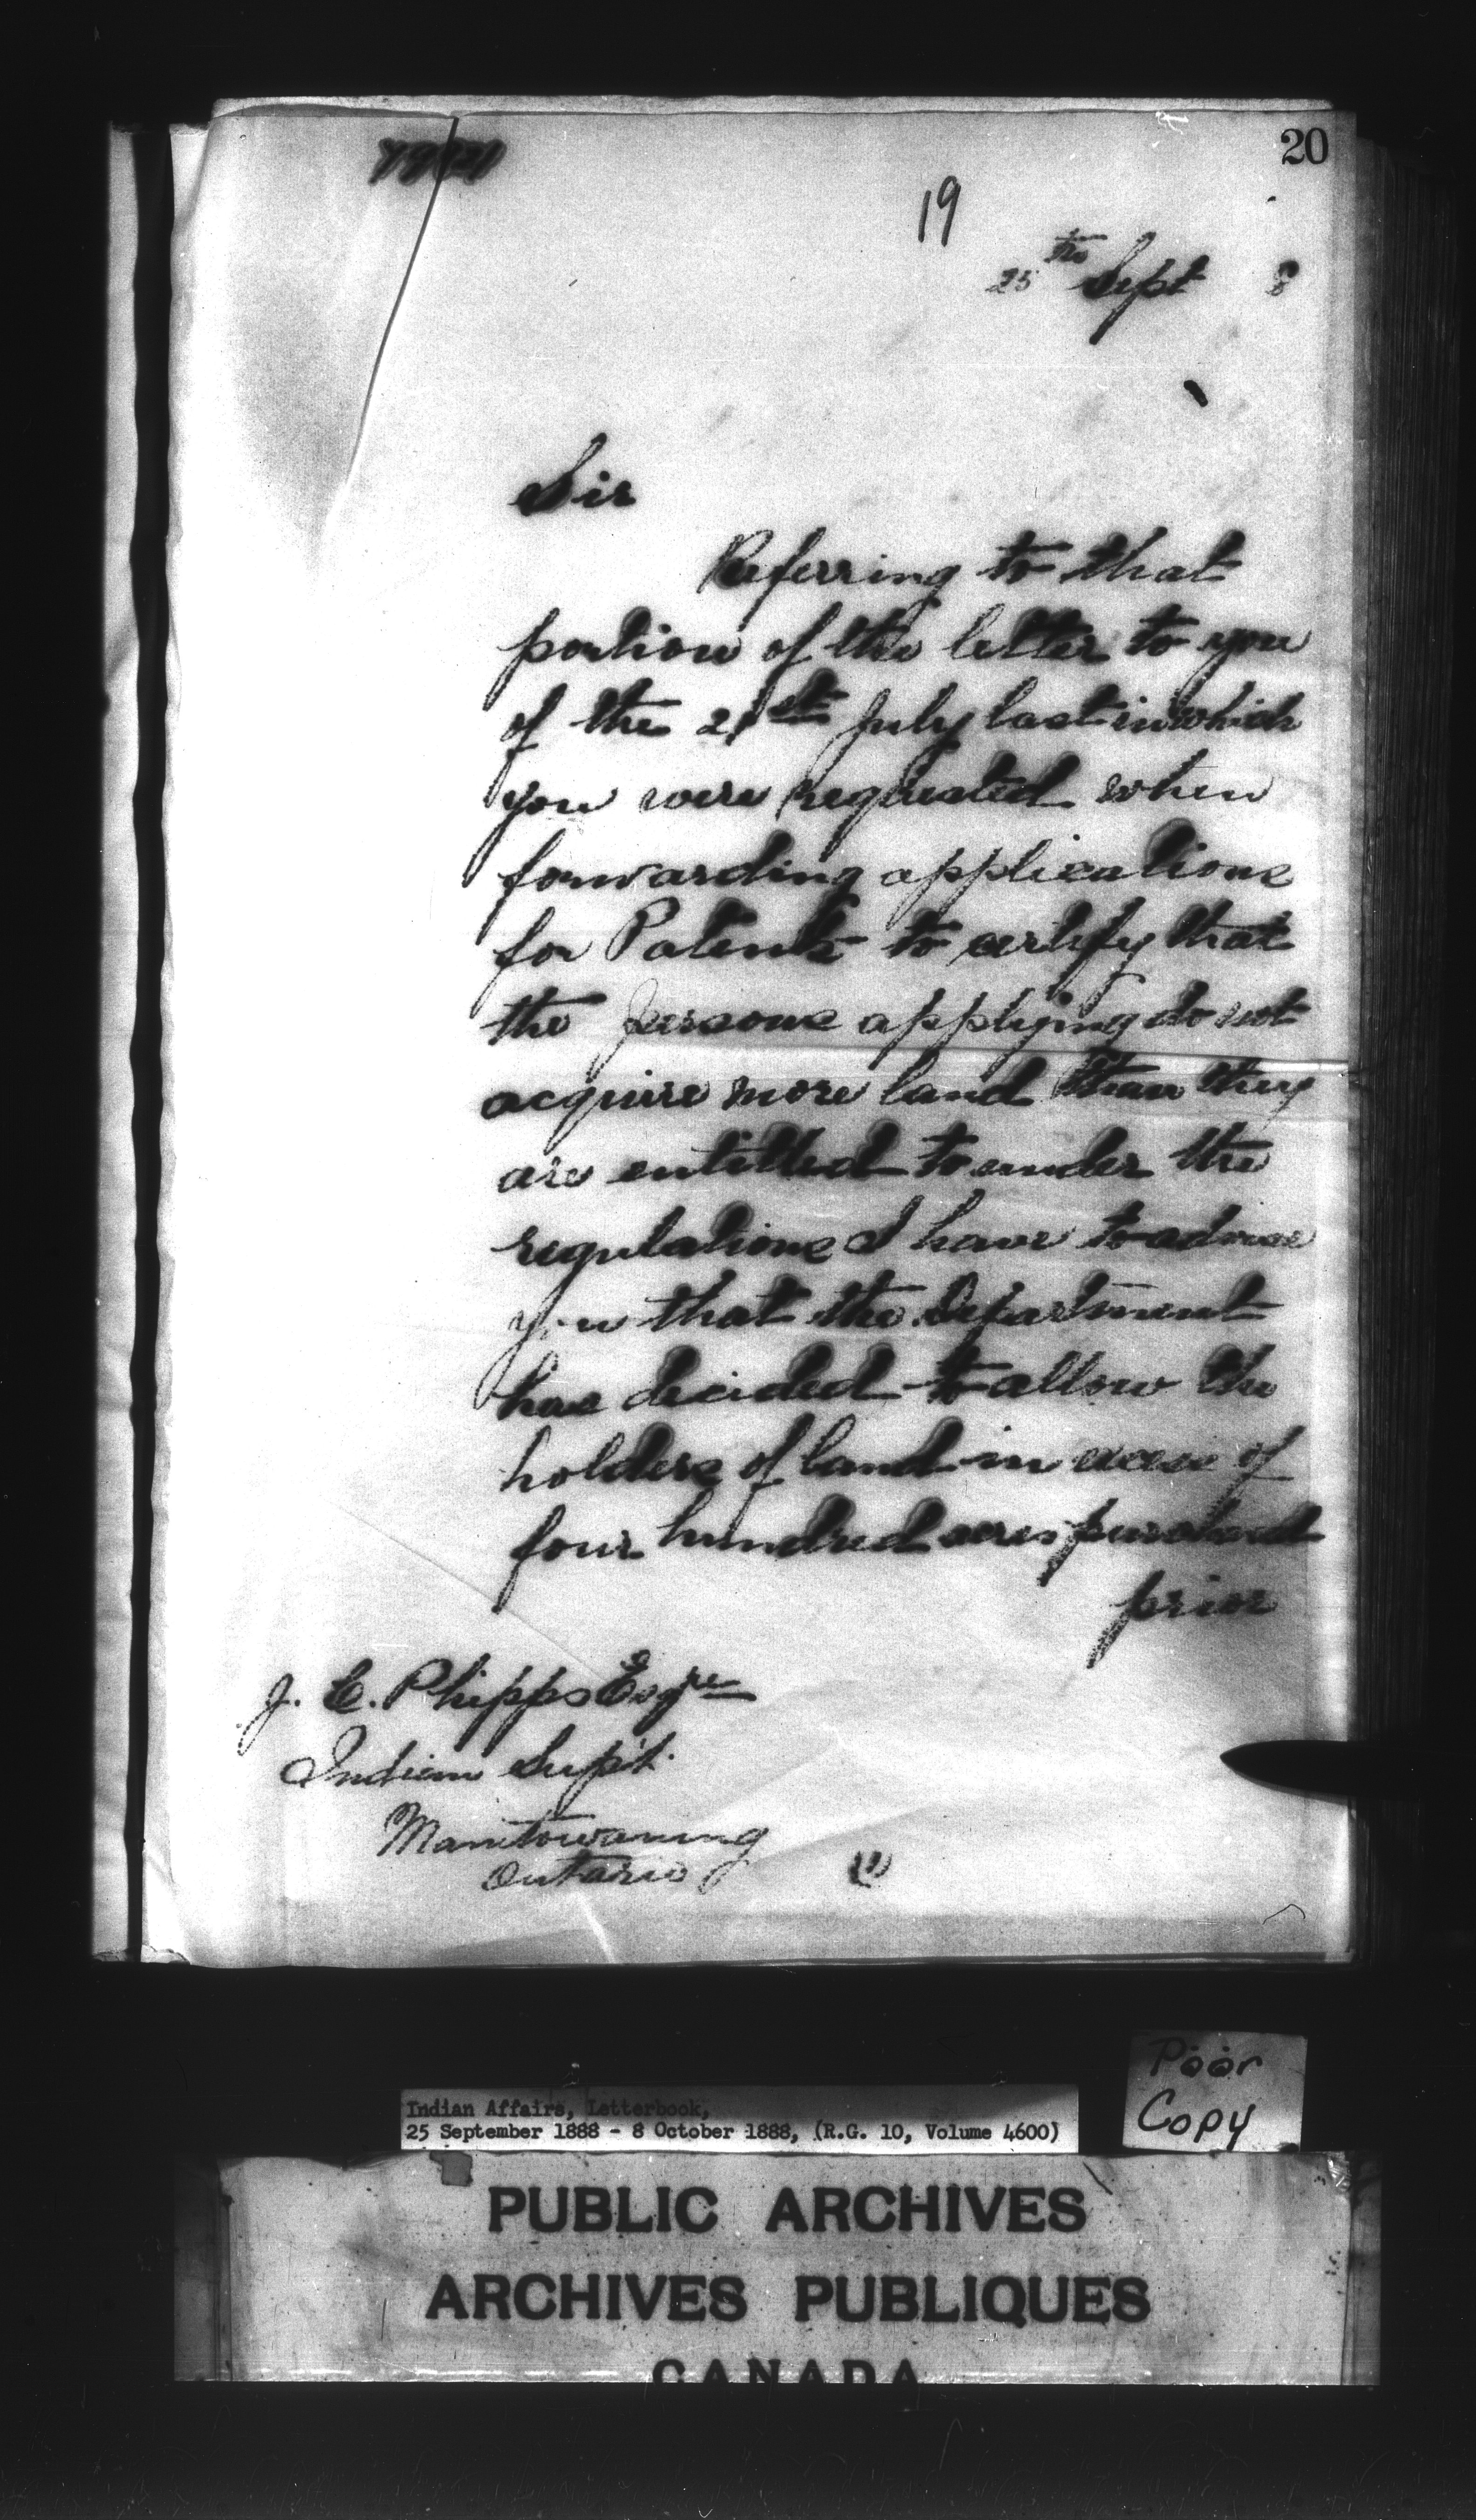 20
19
25th Sept 8
Sir
Referring to that
portion of the letter to you
of the 21st July last in which
you were requested when
forwarding applications
for Patents to certify that
the persons applying do not
acquire more land than they
are entitled to under the
regulations I have to advise
you that the Department
has decided to allow the
holders of land in excess of
four hundred acres purchased
prior
J. C. Phipps Esqre
Indian Supt.
Manitowaning
Ontario
(1)
Poor
Copy
Indian Affairs, Letterbook,
25 September 1888 - 8 October 1888, (R.G. 10, Volume 4600)
PUBLIC ARCHIVES
ARCHIVES PUBLIQUES
CANADA